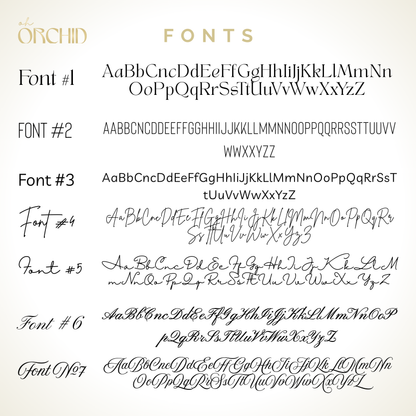 oh
ORCHID
FONTS
Font #1
AaBbCcDdEeFfGgHhIiJjKkLlMmNn
OoPpQqRrSsTtUuVvWwXxYyZz
FONT #2
AABBCCDDEEFFGGHHIIJJKKLLMMNNOOPPQQRRSSTTUUVV
WWXXYYZZ
Font #3
AaBbCcDdEeFfGgHhIiJjKkLlMmNnOoPpQqRrSsT
tUuVvWwXxYyZz
Font #4
AaBbCcDdEeFfGgHhIiJjKkLlMmNnOoPpQqRr
SsTtUuVvWwXxYyZz
Font #5
AaBbCcDdEeFfGgHhIiJjKkLlM
mNnOoPpQqRrSsTtUuVvWwXxYyZz
Font #6
AaBbCcDdEeFfGgHhIiJjKkLlMmNnOoP
pQqRrSsTtUuVvWwXxYyZz
Font Nº7
AaBbCcDdEeFfGgHhIiJjKkLlMmNn
OoPpQqRrSsTtUuVvWwXxYyZz